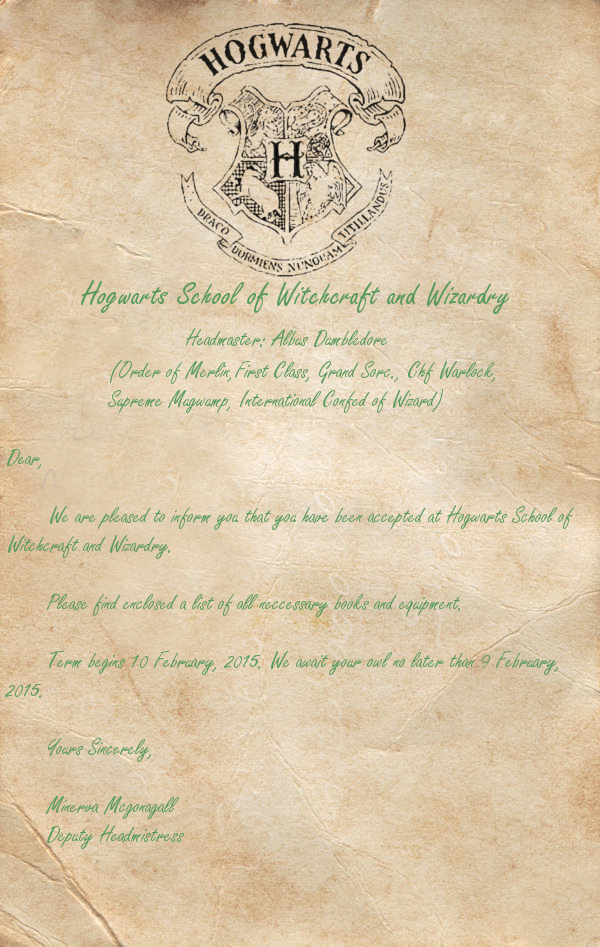 HOGWARTS
H
DRACO DORMIENS NUNQUAM TITILLANDUS
Hogwarts School of Witchcraft and Wizardry
Headmaster: Albus Dumbledore
(Order of Merlin, First Class, Grand Sorc., Chf Warlock,
Supreme Mugwump, International Confed of Wizard)
Dear,
We are pleased to inform you that you have been accepted at Hogwarts School of
Witchcraft and Wizardry.
Please find enclosed a list of all neccessary books and equipment.
Term begins 10 February, 2015. We await your owl no later than 9 February,
2015.
Yours Sincerely,
Minerva Mcgonagall
Deputy Headmistress